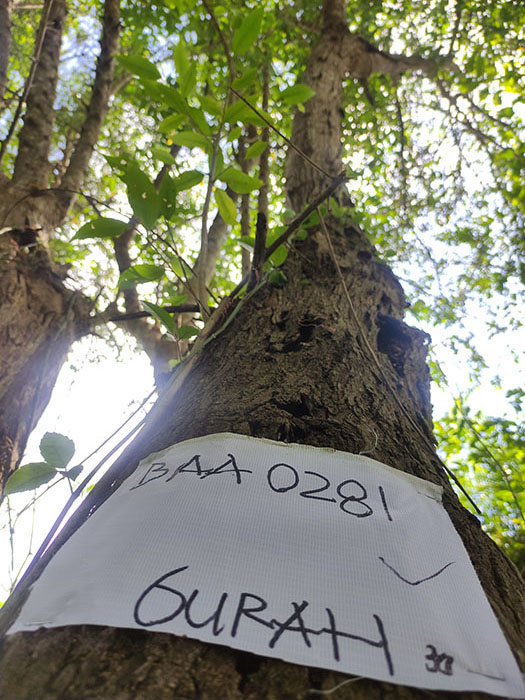 BAA 0281
GURAH 30